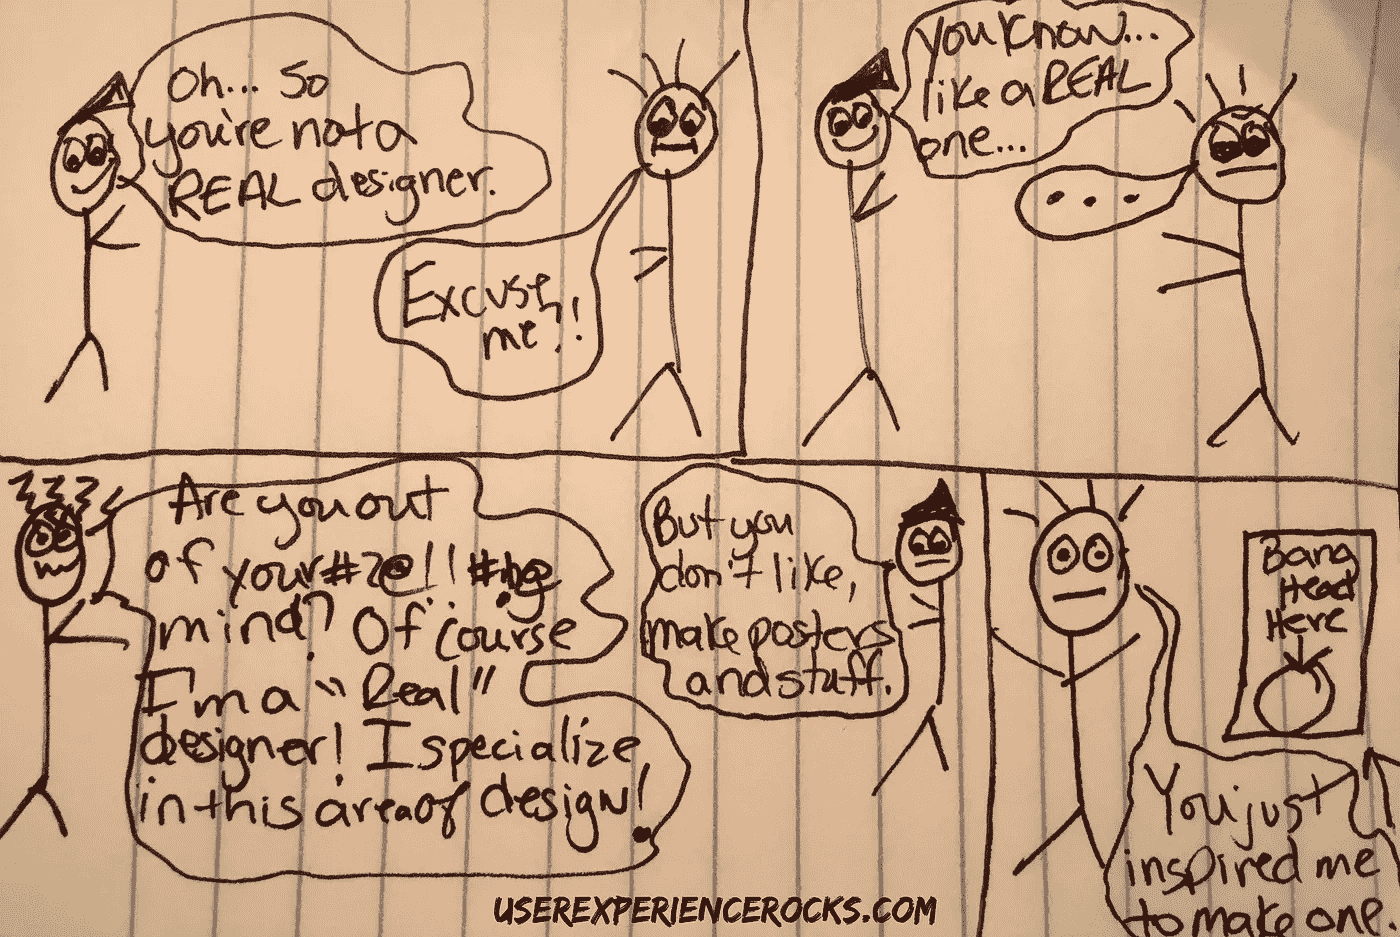 Oh... So
you're not a
REAL designer.
Excuse
me?!
you know...
like a REAL
one...
...
Are you out
of your #?@!!#!@
mind? Of course
I'm a "Real"
designer! I specialize
in this area of design!
But you
don't like,
make posters
and stuff.
Bang
Head
Here
You just
inspired me
to make one.
USEREXPERIENCEROCKS.COM